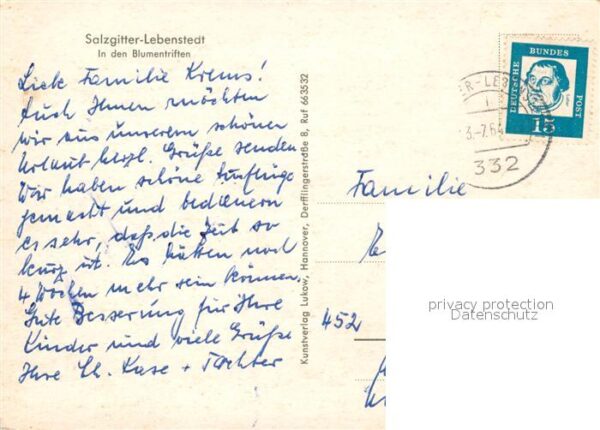 Salzgitter-Lebenstedt
In den Blumentriften
Liebe Familie Krems!
Auch Ihnen möchten
wir aus unserem schönen
Urlaub herzl. Grüße senden
Wir haben schöne Ausflüge
gemacht und bedauern
es sehr, daß die Zeit so
kurz ist. Es hätten noch
4 Wochen mehr sein können.
Gute Besserung für Ihre
Kinder und viele Grüße
Ihre Ch. Kase + Tochter
Kunstverlag Lukow, Hannover, Derfflingerstraße 8, Ruf 663532
DEUTSCHE BUNDES POST
15
3.-7.6
332
Familie
452
privacy protection
Datenschutz